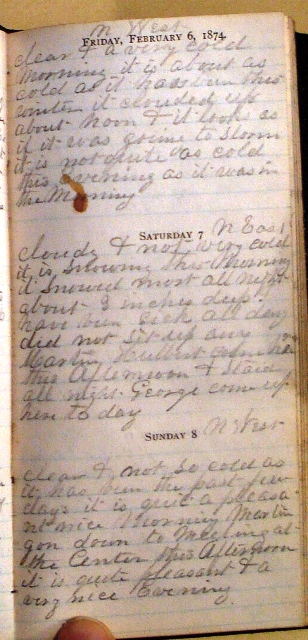 N West
FRIDAY, FEBRUARY 6, 1874.
clear & a very cold
morning it is about as
cold as it has been this
winter it clouded up
about noon & it looks as
if it was going to storm
it is not quite as cold
this evening as it was in
the Morning
SATURDAY 7 N East
cloudy & not very cold
it is snowing this Morning
it snowed most all night
about 8 inches deep. I
have been sick all day
did not sit up any
Martin Hulbert come
this Afternoon & Staid
all night George come up
here to day
SUNDAY 8 N West
clear & not so cold as
it has been the past few
days it is quite a pleasa
nt nice Morning Martin
gon down to Meeting at
the Center this Afternoon
it is quite pleasant & a
very nice Evening